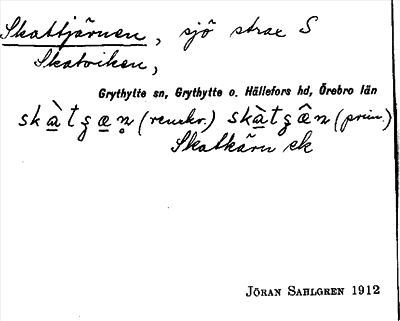 Skattjärnen, sjö strax S
Skatviken,
Grythytte sn, Grythytte o. Hällefors hd, Örebro län
skàtʒæn̥ (renskr.) skàtʒæ̂n (prim.)
Skatkärn ek
JÖRAN SAHLGREN 1912